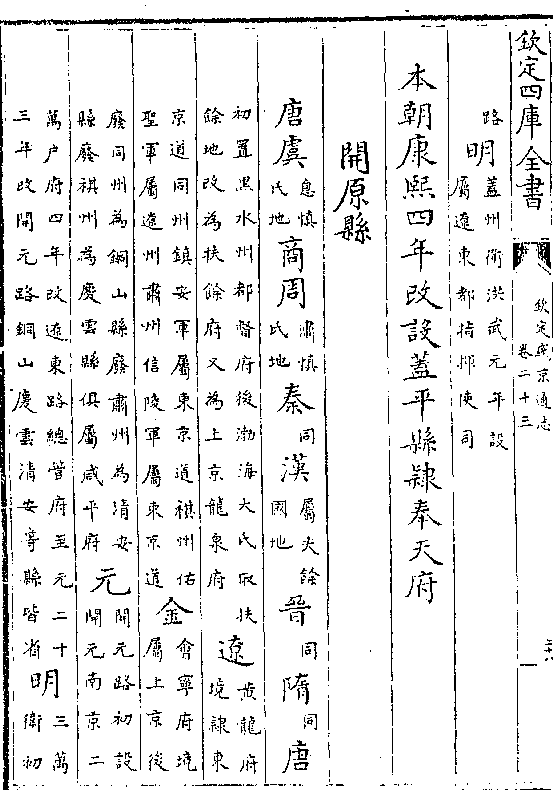 欽定四庫全書
欽定盛京通志
卷二十三
路明蓋州衛洪武元年設
屬遼東都指揮使司
本朝康熙四年改設蓋平縣隸奉天府
開原縣
唐虞息慎氏地商周肅慎氏地秦同漢屬夫餘國地晉同隋同唐
初置黑水州都督府後渤海大氏取扶
餘地改為扶餘府又為上京龍泉府
遼黃龍府
境隸東
京道同州鎮安軍屬東京道祺州佑
聖軍屬遼州肅州信陵軍屬東京道
金會寧府境
屬上京後
廢同州為銅山縣廢肅州為清安
縣廢祺州為慶雲縣俱屬咸平府
元開元路初設
開元南京二
萬户府四年改遼東路總管府至元二十
三年改開元路銅山慶雲清安等縣皆省
明三萬
衛初